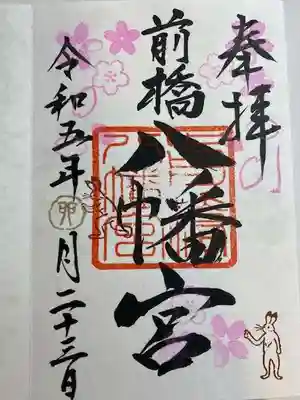 奉拝
前橋
八幡宮
令和五年卯月二十三日